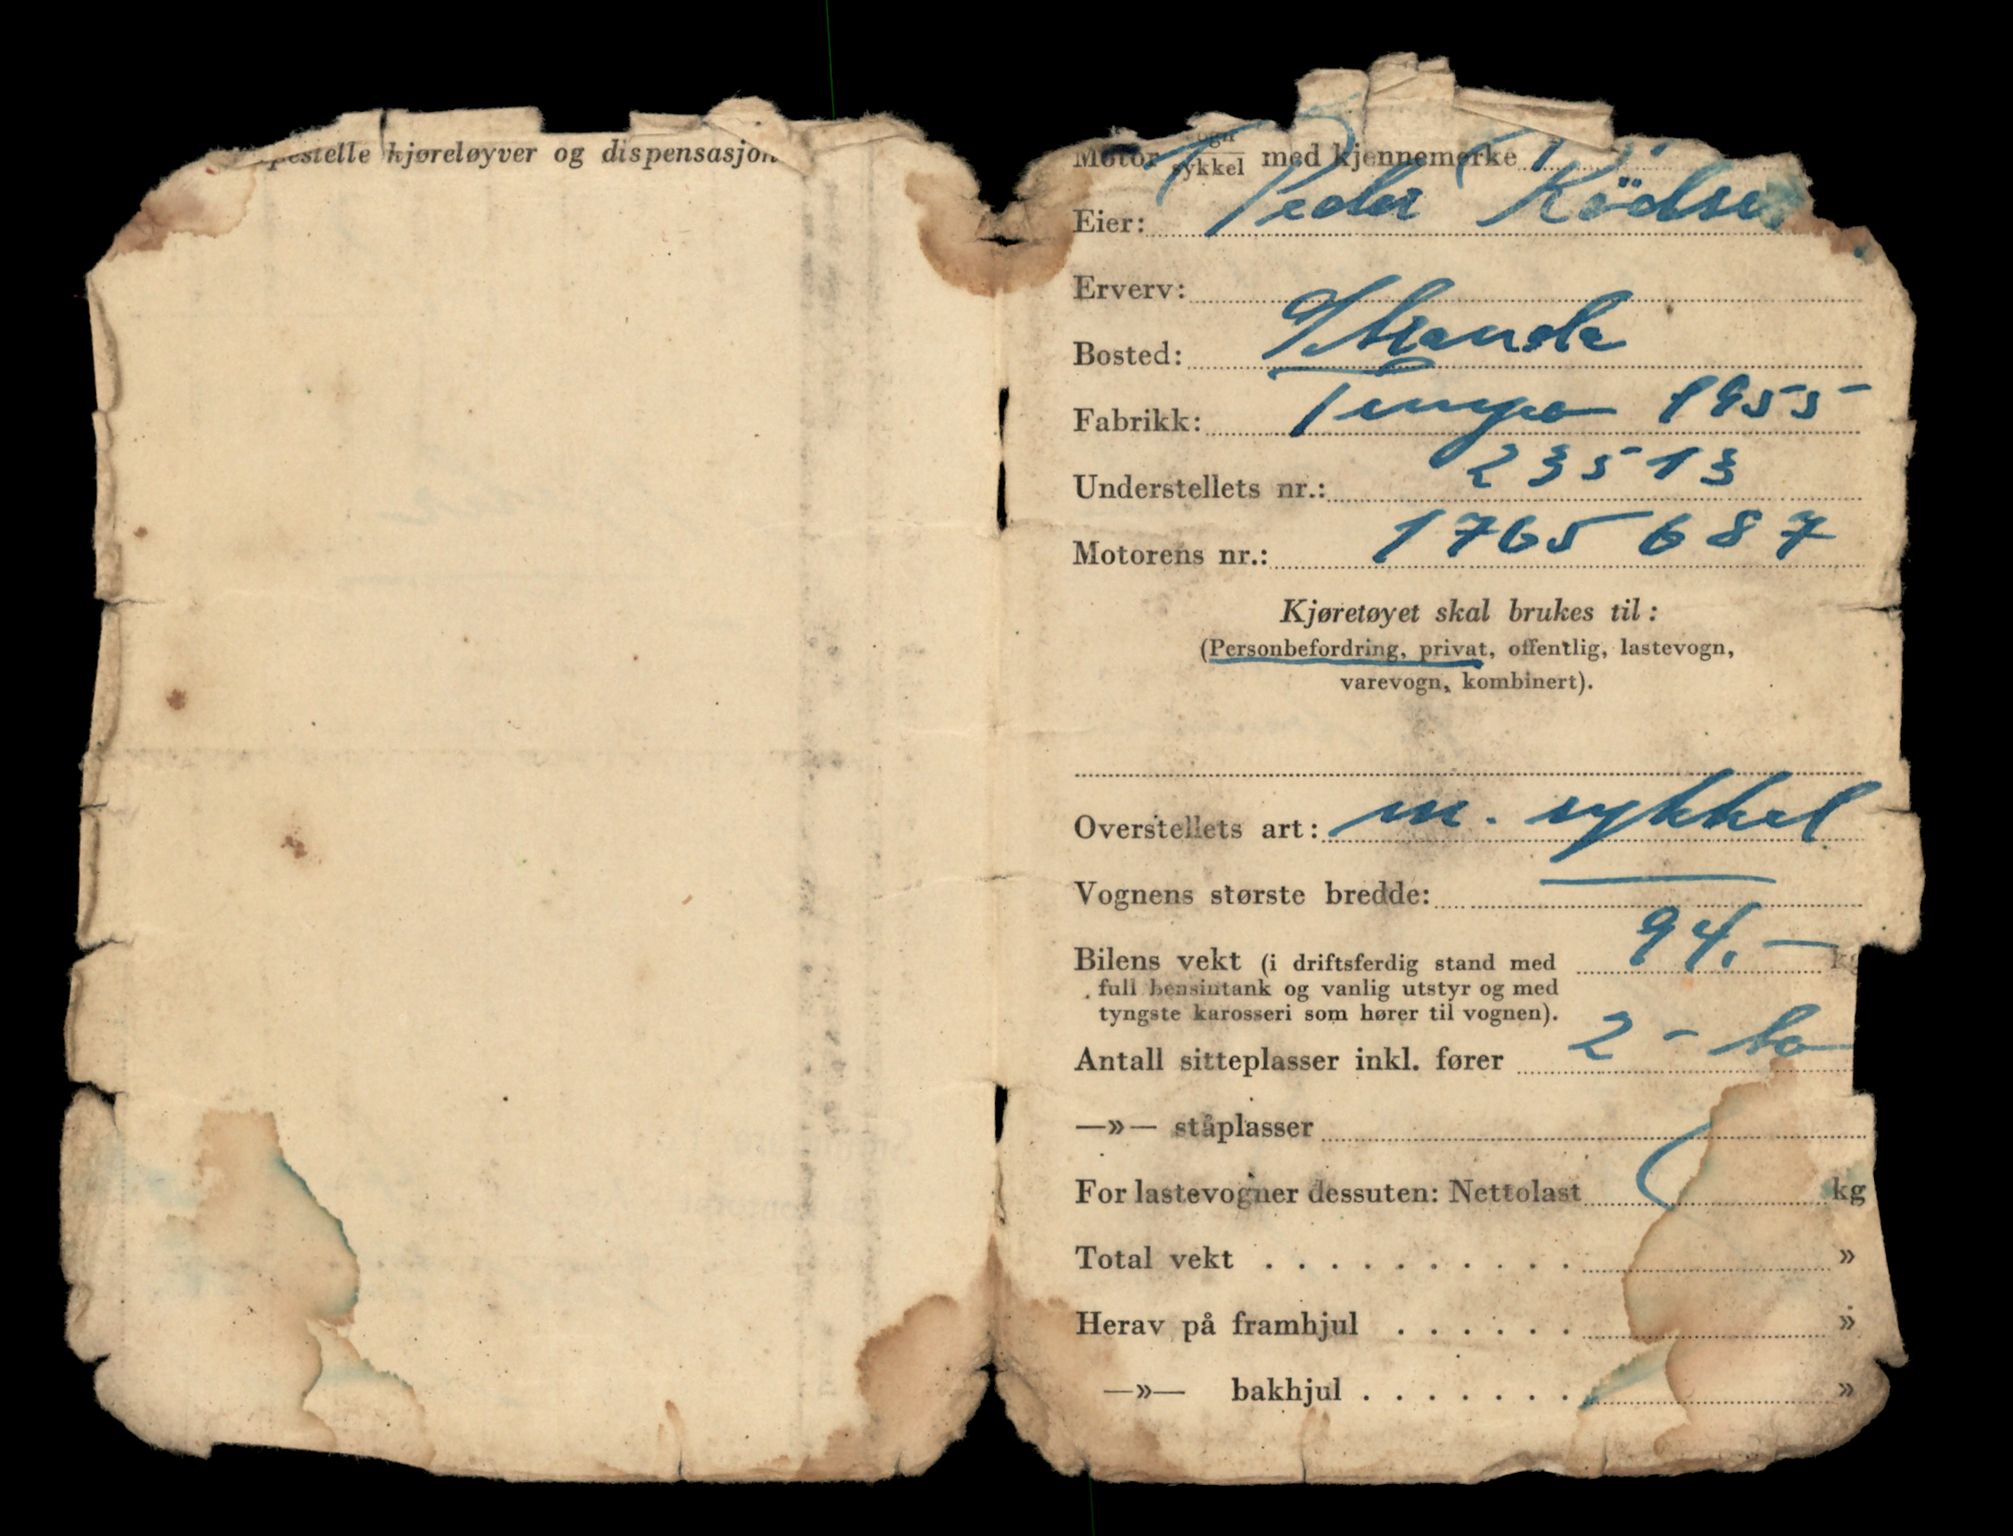 pestelle kjøreløyver og dispensasjon
Motor vogn/sykkel med kjennemerke
Eier: Peder Rödse
Erverv:
Bosted: Stranda
Fabrikk: Tempo 1955
Understellets nr.: 23513
Motorens nr.: 1765687
Kjøretøyet skal brukes til:
(Personbefordring, privat, offentlig, lastevogn,
varevogn, kombinert).
Overstellets art: m. sykkel
Vognens største bredde:
Bilens vekt (i driftsferdig stand med 94.— kg
full bensintank og vanlig utstyr og med
tyngste karosseri som hører til vognen).
Antall sitteplasser inkl. fører 2 - to
—»— ståplasser
For lastevogner dessuten: Nettolast kg
Total vekt . . . . . . . . . . »
Herav på framhjul . . . . . . »
—»— bakhjul . . . . . . . »